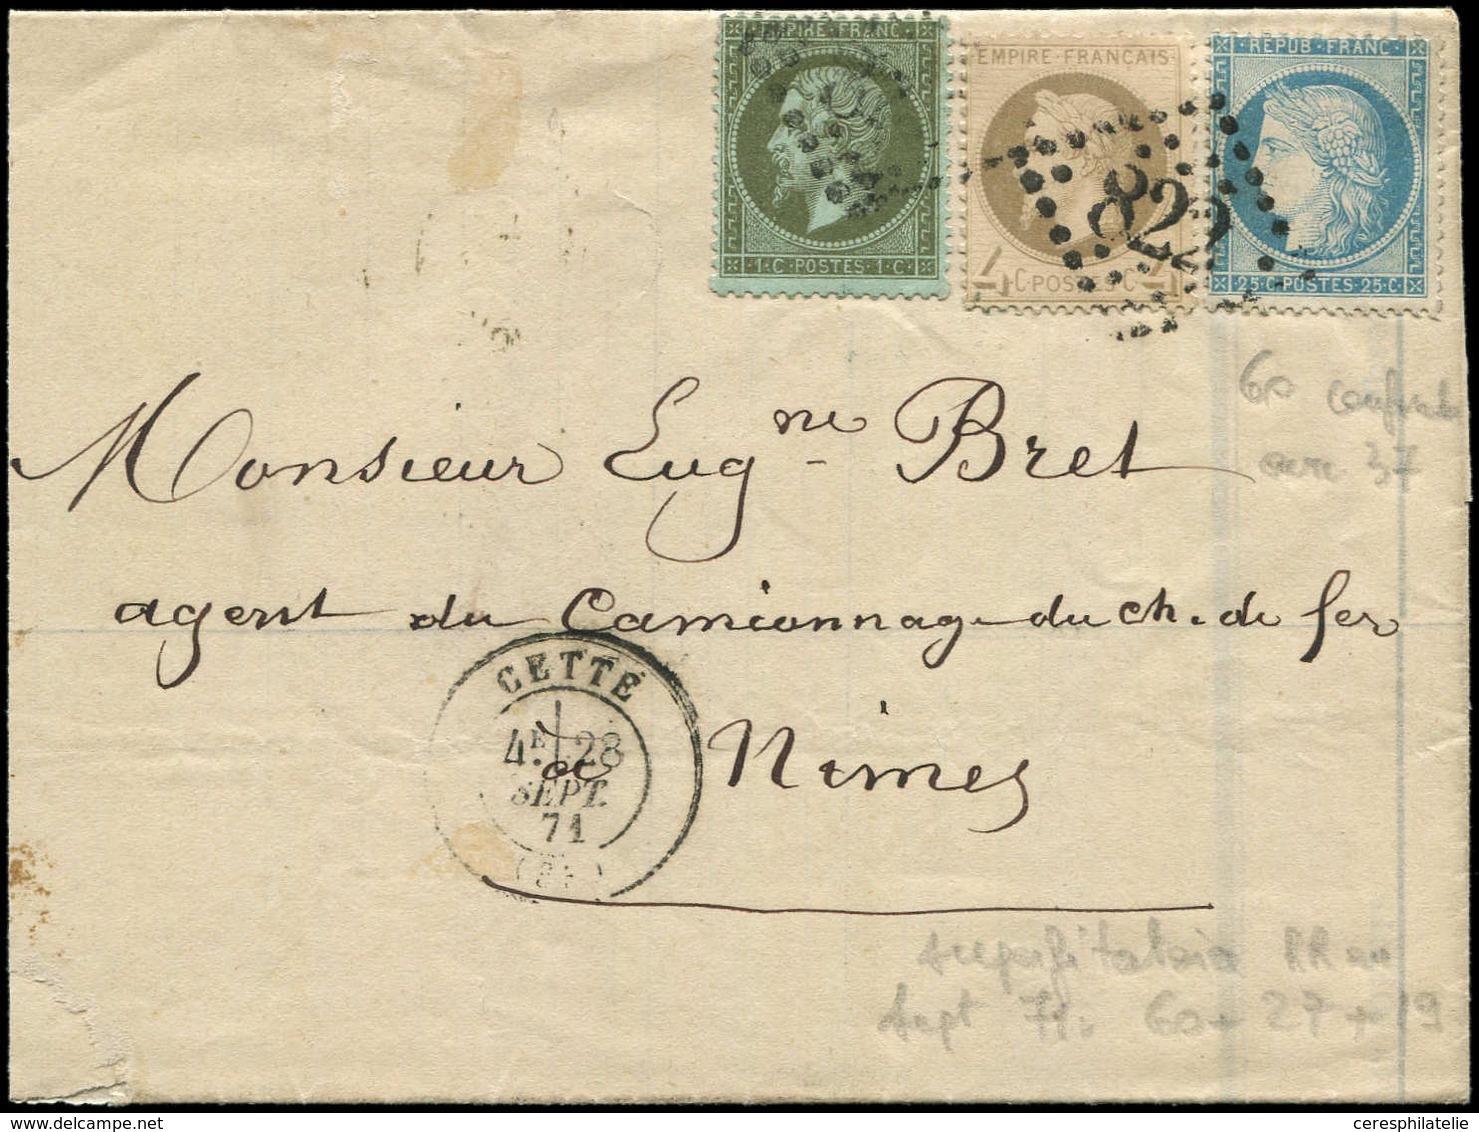 EMPIRE FRANC
1·C·POSTES·1·C·
EMPIRE FRANÇAIS
4 C·POSTES C 4
RÉPUB FRANC
25·C·POSTES·25·C
822
60
37
Monsieur Eugne Bret
agent du Camionnage du ch. de fer
a Nimes
CETTE
4E 28
SEPT.
71
RR en
Sept 71. 60 + 27 + 19
www.delcampe.net
ceresphilatelie